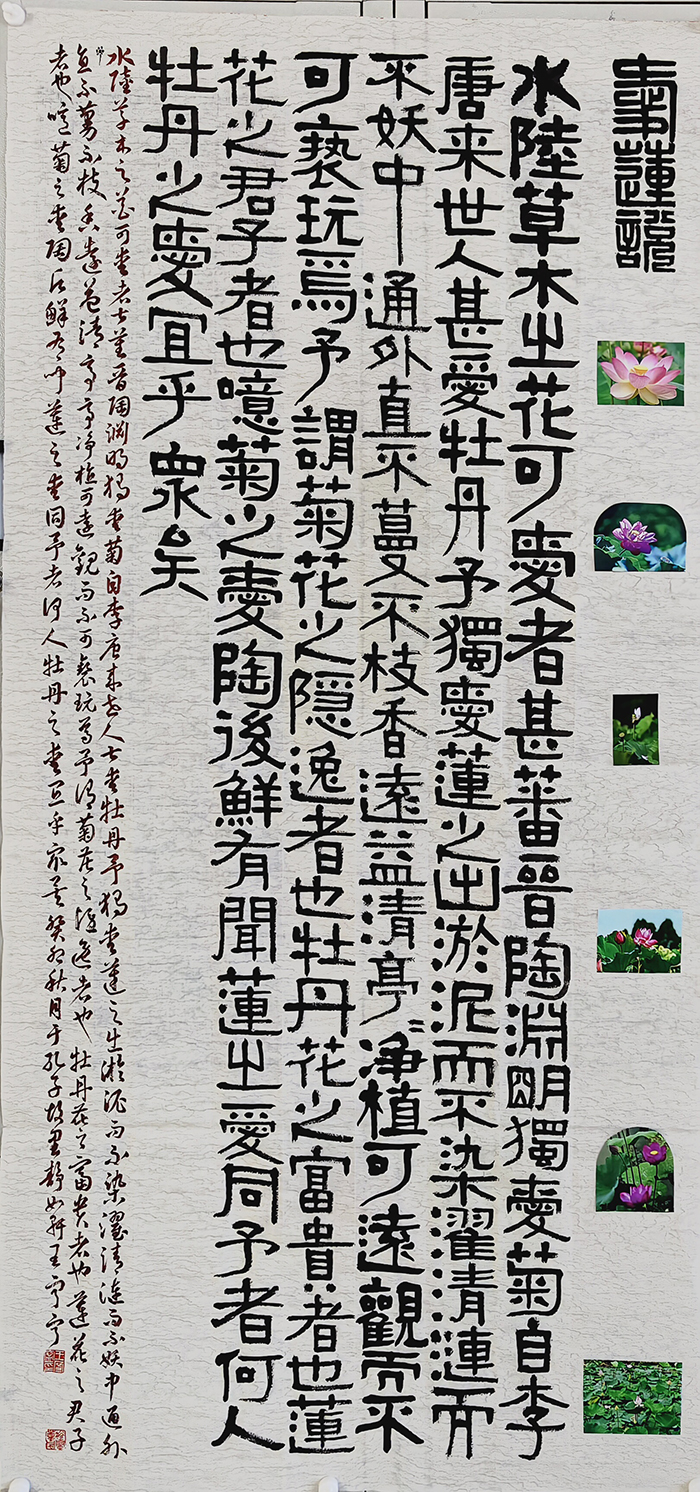 愛蓮說
水陸草木之花可愛者甚蕃晉陶淵明獨愛菊自李
唐来世人甚愛牡丹予獨愛蓮之出淤泥而不染濯清漣而
不妖中通外直不蔓不枝香遠益清亭〻净植可遠觀而不
可褻玩焉予謂菊花之隐逸者也牡丹花之富貴者也蓮
花之君子者也噫菊之愛陶後鮮有聞蓮之愛同予者何人
牡丹之愛宜乎眾矣
水陸草木之花可愛者甚蕃晉陶淵明獨愛菊自李唐来世人甚愛牡丹予獨愛蓮之出淤泥而不染濯清漣而不妖中通外
直不蔓不枝香遠益清亭亭净植可遠觀而不可褻玩焉予謂菊花之隐逸者也牡丹花之富貴者也蓮花之君子
者也噫菊之愛陶后鮮有聞蓮之愛同予者何人牡丹之愛宜乎眾矣癸卯秋月于孔子故里静如軒王